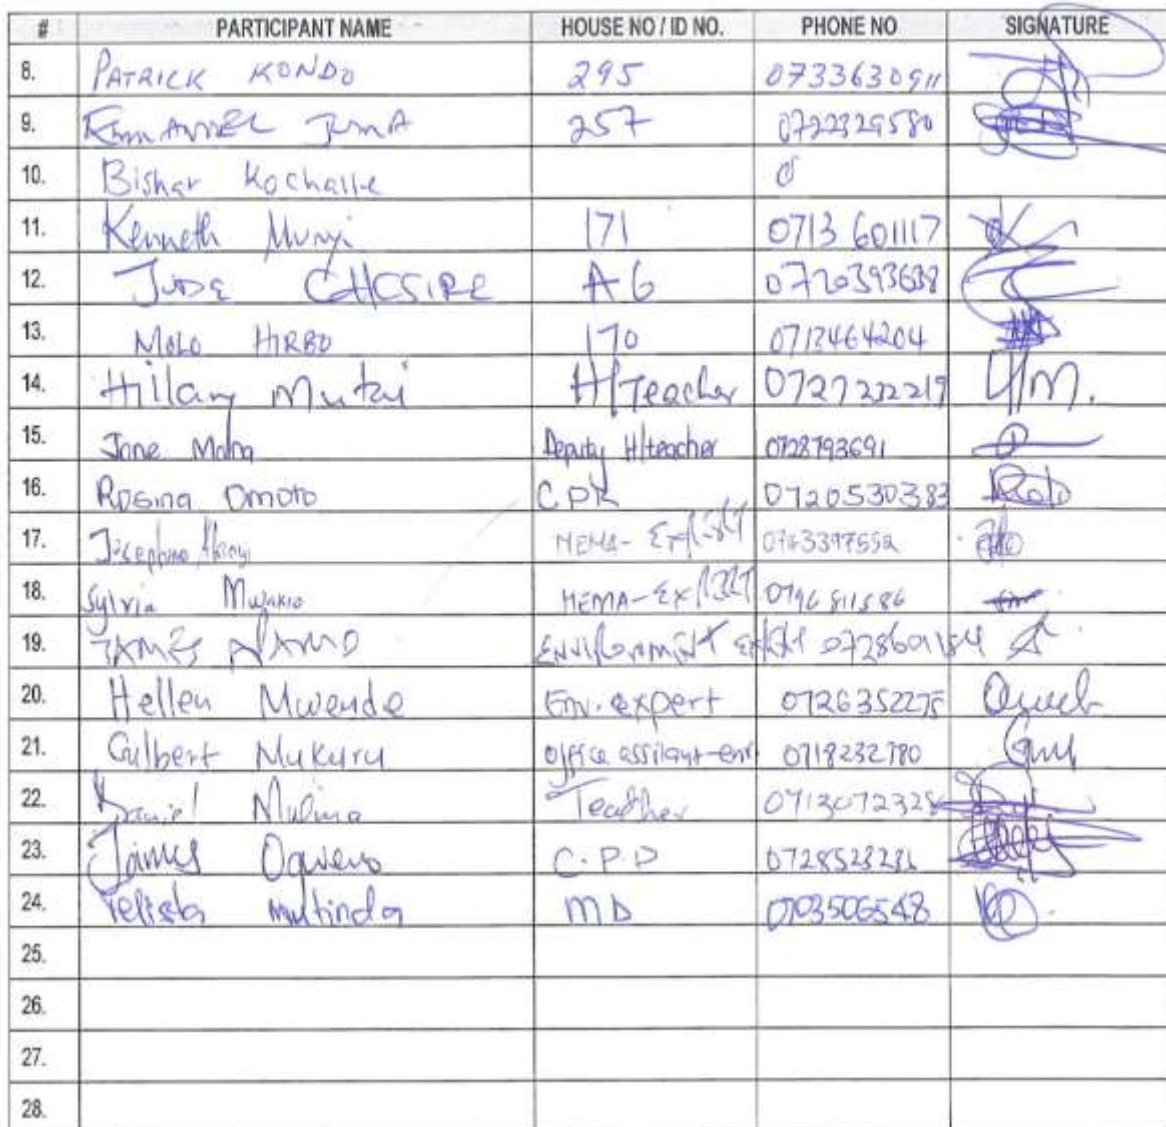 # PARTICIPANT NAME HOUSE NO / ID NO. PHONE NO SIGNATURE
8. PATRICK KONDO 295 0733630911
9. EMMANUEL JUMA 257 0722329580
10. Bishar Kochalle 0
11. Kenneth Munyi 171 0713 601117
12. JUDE CHESIRE A6 0720393638
13. MOLO HIRBO 170 0712464204
14. Hillary Mutai H/Teacher 0727232219 H/M.
15. Jane Deputy H/teacher 0728793691
16. Rosina Omoto CPK 0720530383
17. Josephine NEMA- Expert 0743397552
18. Sylvia Mwakio NEMA-Expert 0796811586
19. JAMES Environment expert 0728601184
20. Hellen Mwende Env. expert 0726352275
21. Gilbert Mukuru office assistant-env 0718232780
22. Daniel Mulima Teacher 0713072328
23. James Oqweno C.P.D
24. Felista Mutinda MD 0703506548
25.
26.
27.
28.